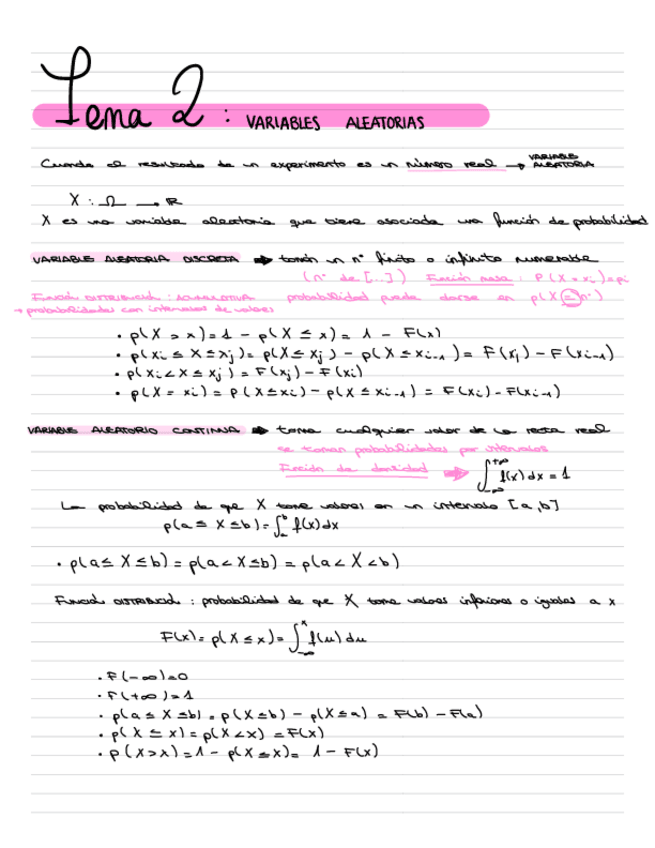 Tema 2: VARIABLES ALEATORIAS
Cuando el resultado de un experimento es un número real → VARIABLE ALEATORIA
X : Ω → ℝ
X es una variable aleatoria que tiene asociada una función de probabilidad
VARIABLE ALEATORIA DISCRETA ➡ toman un nº finito o infinito numerable
(nº de [...]) Función masa : P(X = xi) = pi
FUNCIÓN DISTRIBUCIÓN : ACUMULATIVA probabilidad puede darse en p(X = nº)
→ probabilidades con intervalos de valores
· p(X > x) = 1 - p(X ≤ x) = 1 - F(x)
· p(xi ≤ X ≤ xj) = p(X ≤ xj) - p(X ≤ xi-1) = F(xj) - F(xi-1)
· p(xi < X ≤ xj) = F(xj) - F(xi)
· p(X = xi) = p(X ≤ xi) - p(X ≤ xi-1) = F(xi) - F(xi-1)
VARIABLE ALEATORIO CONTINUA ➡ toma cualquier valor de la recta real
se toman probabilidades por intervalos
Función de densidad ➡ ∫_{-∞}^{+∞} f(x) dx = 1
La probabilidad de que X tome valores en un intervalo [a,b]
p(a ≤ X ≤ b) = ∫_a^b f(x) dx
· p(a ≤ X ≤ b) = p(a < X ≤ b) = p(a < X < b)
FUNCIÓN DISTRIBUCIÓN : probabilidad de que X tome valores inferiores o iguales a x
F(x) = p(X ≤ x) = ∫_{-∞}^x f(u) du
· F(-∞) = 0
· F(+∞) = 1
· p(a ≤ X ≤ b) = p(X ≤ b) - p(X ≤ a) = F(b) - F(a)
· p(X ≤ x) = p(X < x) = F(x)
· p(X > x) = 1 - p(X ≤ x) = 1 - F(x)